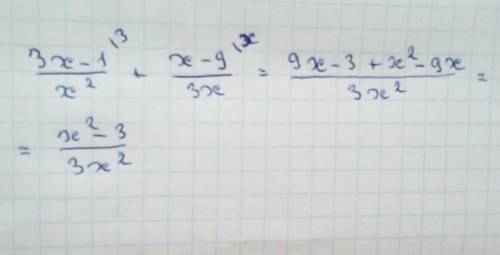 (3x-1)/x² \3 + (x-9)/3x \x = (9x-3+x²-9x)/3x² =
= (x²-3)/3x²